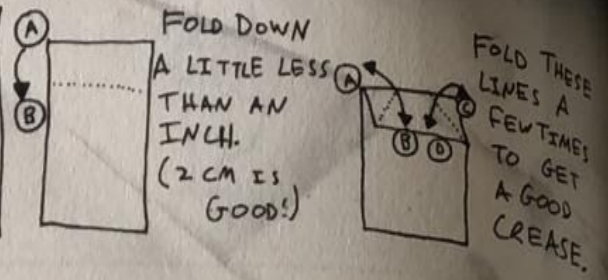 A
B
FOLD DOWN
A LITTLE LESS
THAN AN
INCH.
(2 CM IS
GOOD!)
A
B
D
C
FOLD THESE
LINES A
FEW TIMES
TO GET
A GOOD
CREASE.